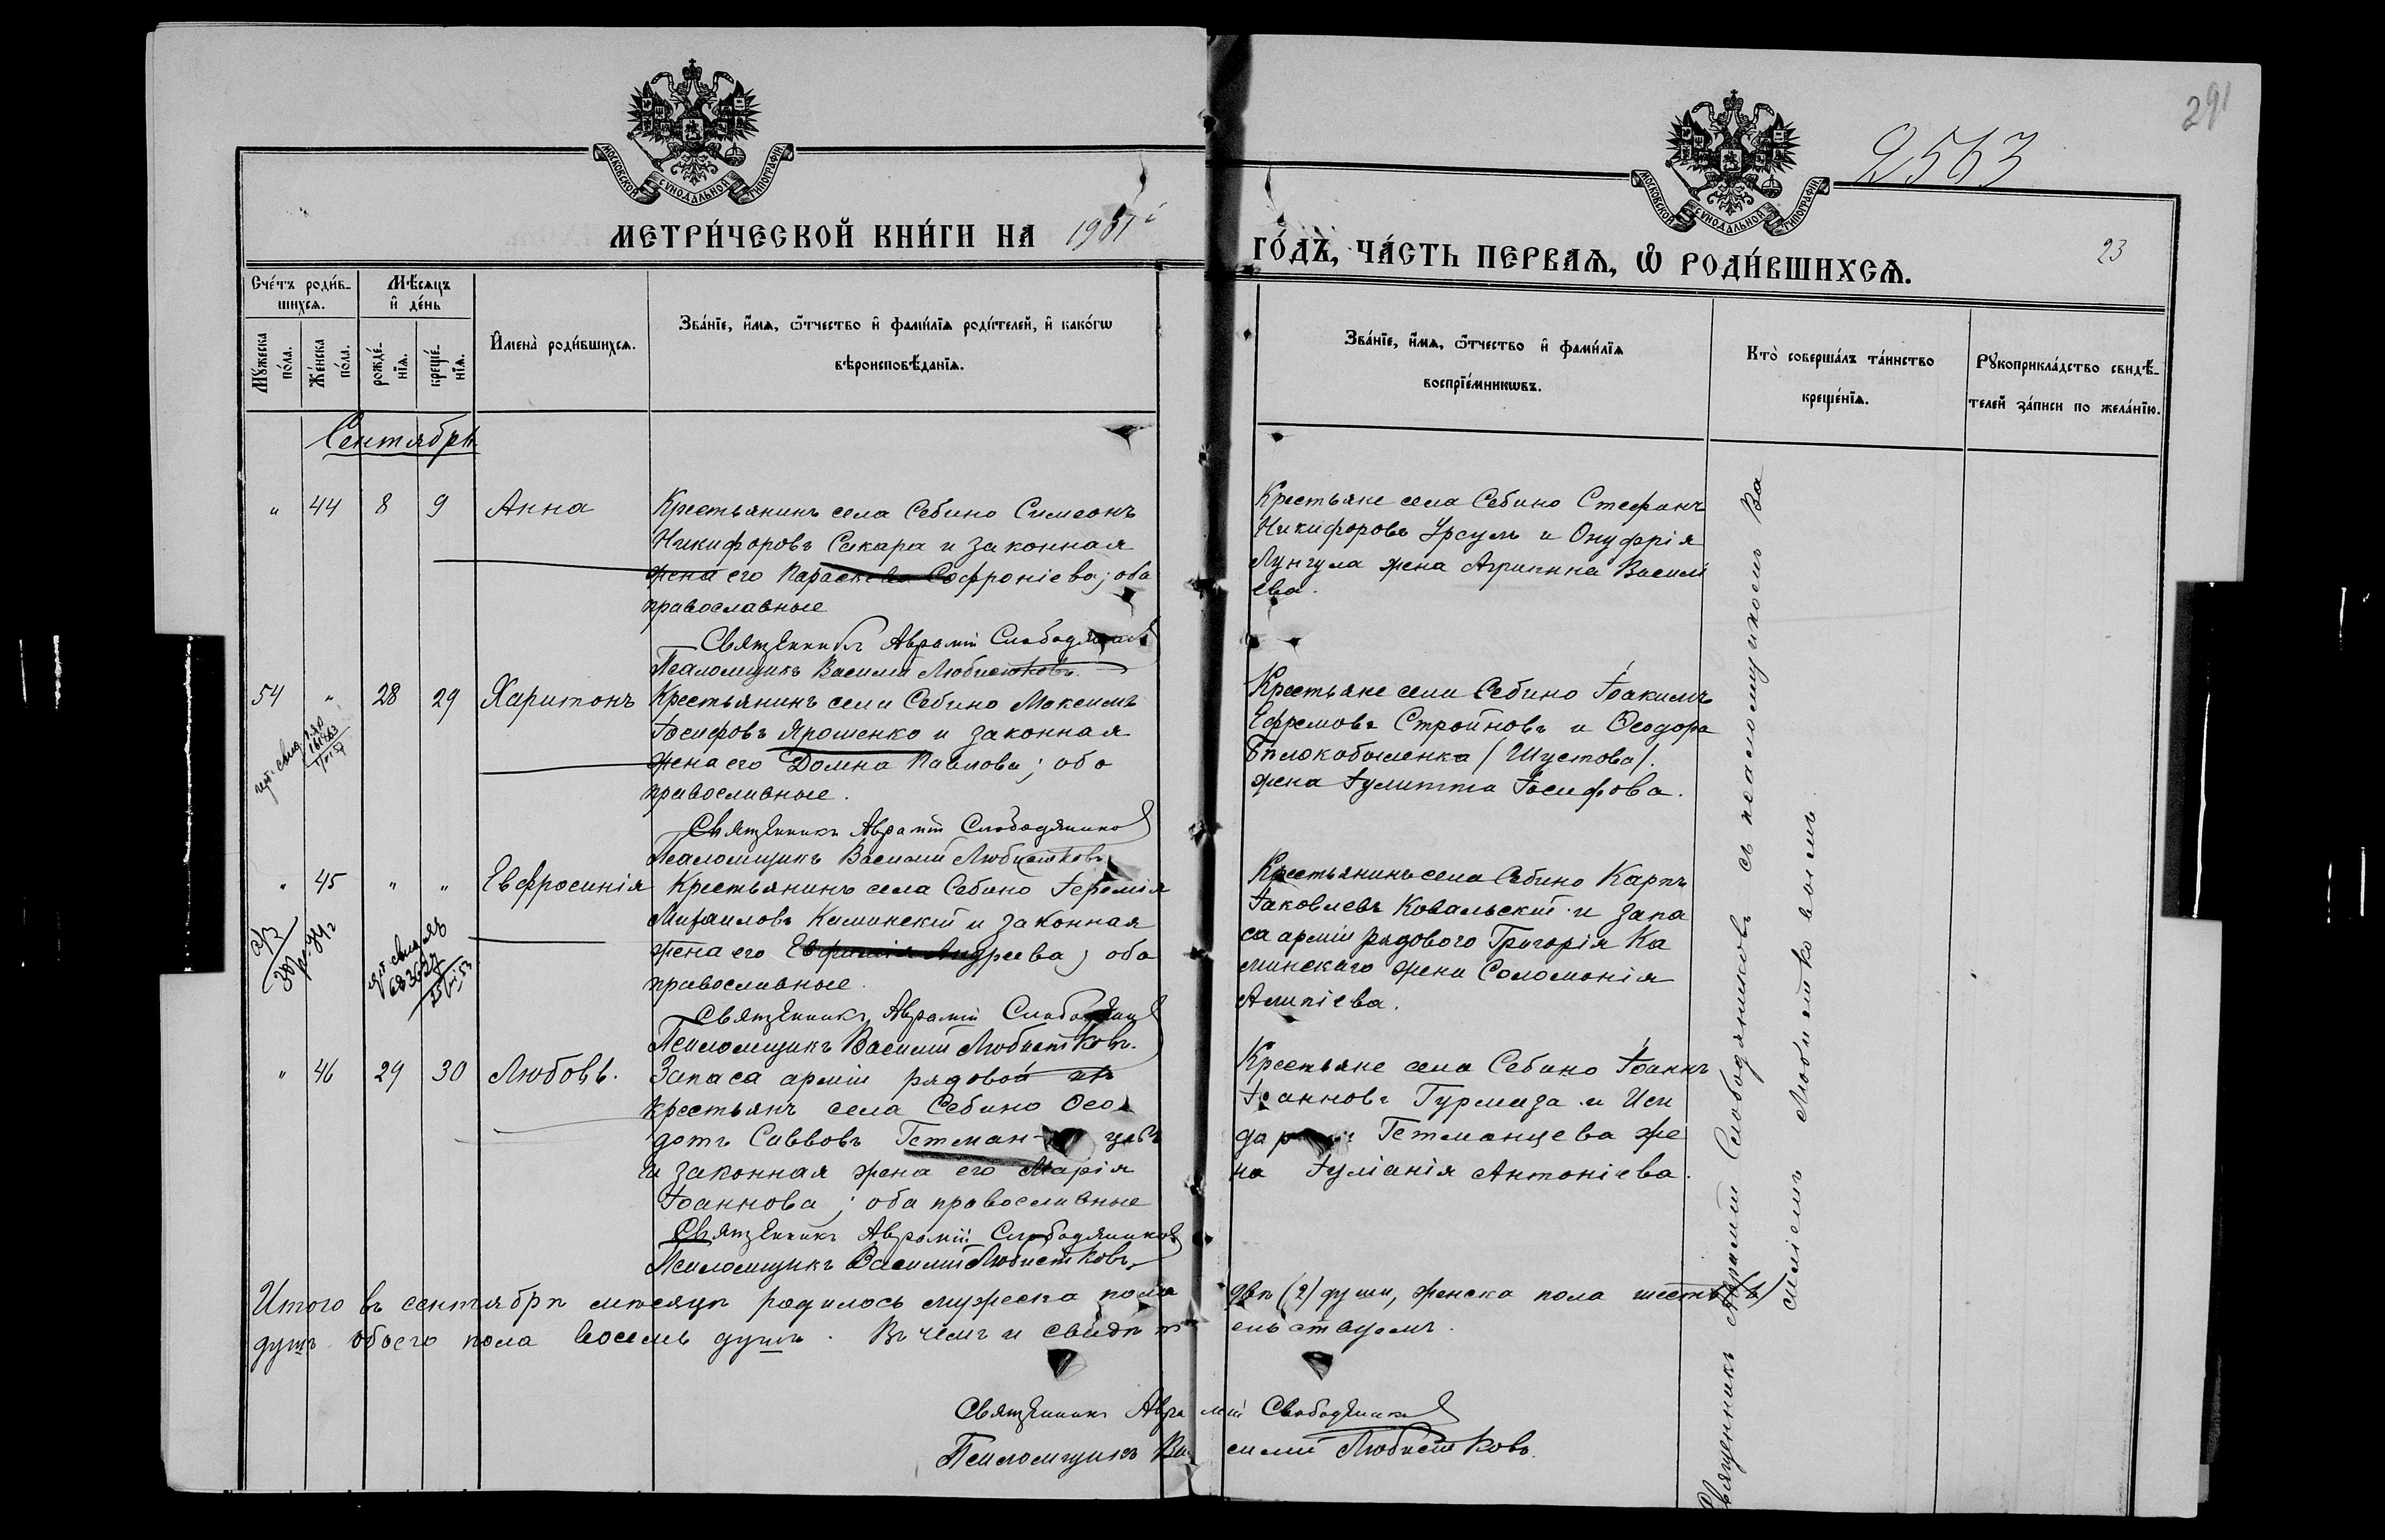 291
2563
23
МОСКОВСКОЙ СѴНОДАЛЬНОЙ ТИПОГРАФІИ
МОСКОВСКОЙ СѴНОДАЛЬНОЙ ТИПОГРАФІИ
МЕТРИ́ЧЕСКОЙ КНИ́ГИ НА
ГО́ДЪ, ЧА́СТЬ ПЕРВАѦ, Ѡ҆ РОДИ́ВШИХСѦ.
Сче́тъ роди́в-
шихсѧ.
Мꙋжеска
по́ла.
Же́нска
по́ла.
Мѣ́сѧцъ
и҆ де́нь
рожде́-
нїѧ.
креще́-
нїѧ.
И҆мена̀ роди́вшихсѧ.
Зва́нїе, и҆́мѧ, ѻ҆́тчество и҆ фами́лїѧ роди́телей, и҆ како́гѡ
вѣроисповѣ́данїѧ.
Зва́нїе, и҆́мѧ, ѻ҆́тчество и҆ фами́лїѧ
воспрїе́мникѡвъ.
Кто̀ соверша́лъ та́инство
креще́нїѧ.
Рꙋкоприкла́дство свидѣ́-
телей за́писи по жела́нїю.
Сентябрь
" 44 8 9 Анна
Крестьянинъ села Себино Симеонъ
Никифоровъ Сакара и законная
жена его Параскева Софроніева; оба
православные
Священникъ Аврамій Слободяников
Псаломщикъ Василій Любистковъ
Крестьяне села Себино Стефанъ
Никифоровъ Урсулъ и Онуфрія
Лунгула жена Агрипина Василі
ева.
54 " 28 29 Харитонъ
Крестьянинъ села Себино Максимъ
Іосифовъ Ярошенко и законная
жена его Домна Павлова; оба
православные.
Священникъ Аврамій Слободяников
Псаломщикъ Василій Любистковъ
Крестьяне села Себино Іоакимъ
Ефремовъ Стройновъ и Ѳеодора
Бѣлокобыленка (Шустова).
жена Іулитта Іосифова.
" 45 " " Евфросинія
Крестьянинъ села Себино Іеремія
Михаиловъ Каминскій и законная
жена его Евфимія Андреева; оба
православные.
Священникъ Аврамій Слободяников
Псаломщикъ Василій Любистковъ.
Крестьянинъ села Себино Карпъ
Іаковлевъ Ковальскій и запа
са арміи рядового Григорія Ка
минскаго жена Соломонія
Алипіева.
" 46 29 30 Любовь.
Запаса арміи рядовой изъ
крестьянъ села Себино Ѳео
дотъ Саввовъ Гетман- цевъ
и законная жена его Марія
Іоаннова; оба православные
Священникъ Аврамій Слободяников
Псаломщикъ Василій Любистковъ
Крестьяне села Себино Іоаннъ
Іоанновъ Гурмаза и Иси
дора Гетманцева же
на Іуліанія Антоніева.
Священникъ Аврамій Слободяниковъ съ псаломщикомъ Ва
силіемъ Любистковымъ
Итого въ сентябрѣ мѣсяцѣ родилось мужеска пола двѣ (2) души, женска пола шесть (6)
душъ обоего пола восемь душъ. Въ чемъ и свидѣтельствуемъ.
Священникъ Аврамій Слободяников
Псаломщикъ Василій Любистковъ